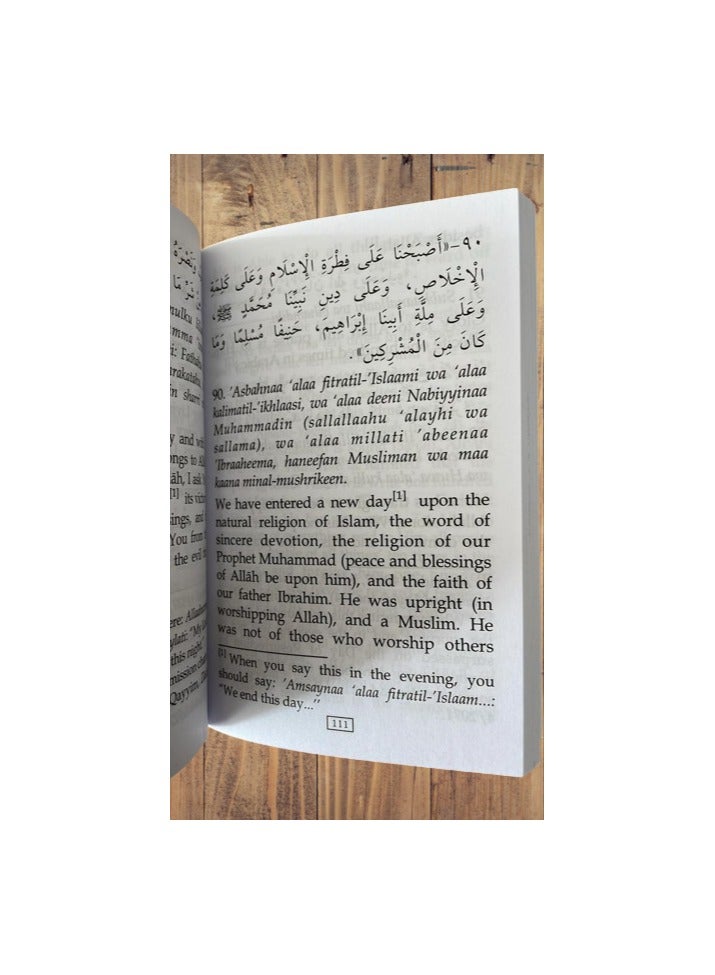 ٩٠-«أَصْبَحْنَا عَلَى فِطْرَةِ الْإِسْلَامِ وَعَلَى كَلِمَةِ
الْإِخْلَاصِ، وَعَلَى دِينِ نَبِيِّنَا مُحَمَّدٍ ﷺ،
وَعَلَى مِلَّةِ أَبِينَا إِبْرَاهِيمَ، حَنِيفًا مُسْلِمًا وَمَا
كَانَ مِنَ الْمُشْرِكِينَ».
90. 'Asbahnaa 'alaa fitratil-'Islaami wa 'alaa
kalimatil-'ikhlaasi, wa 'alaa deeni Nabiyyinaa
Muhammadin (sallallaahu 'alayhi wa
sallama), wa 'alaa millati 'abeenaa
'Ibraaheema, haneefan Musliman wa maa
kaana minal-mushrikeen.
We have entered a new day[1] upon the
natural religion of Islam, the word of
sincere devotion, the religion of our
Prophet Muhammad (peace and blessings
of Allāh be upon him), and the faith of
our father Ibrahim. He was upright (in
worshipping Allah), and a Muslim. He
was not of those who worship others
[1] When you say this in the evening, you
should say: 'Amsaynaa 'alaa fitratil-'Islaam...:
"We end this day..."
111